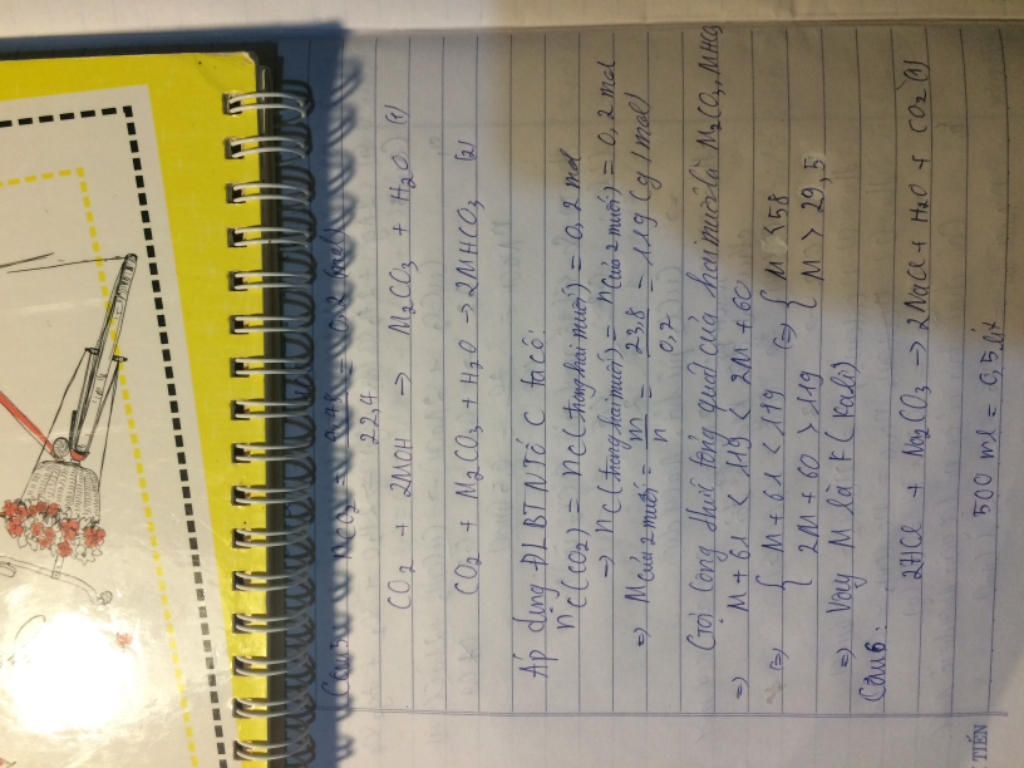 Câu5: nCO2 = 4,48 = 0,2 mol
22,4
CO2 + 2MOH → M2CO3 + H2O (1)
CO2 + M2CO3 + H2O → 2MHCO3 (2)
Áp dụng ĐLBTNTố C ta có:
nC(CO2) = nC(trong hai muối) = 0,2 mol
⇒ nC(trong hai muối) = n(của 2 muối) = 0,2 mol
⇒ M của 2 muối = m/n = 23,8/0,2 = 119 (g/mol)
Gọi công thức tổng quát của hai muối là M2CO3, MHCO3
⇒ M + 61 < 119 < 2M + 60
(=) { M + 61 < 119 (=) { M < 58
2M + 60 > 119 M > 29,5
⇒ Vậy M là K (Kali)
Câu6:
2HCl + Na2CO3 → 2NaCl + H2O + CO2 (1)
500 ml = 0,5 lít
TIẾN